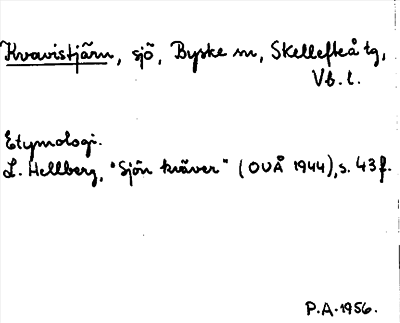 Kvavistjärn, sjö, Byske sn, Skellefteå tg,
Vb. l.
Etymologi.
L. Hellberg, "Sjön kräver" (OUÅ 1944), s. 43 f.
P.A. 1956.